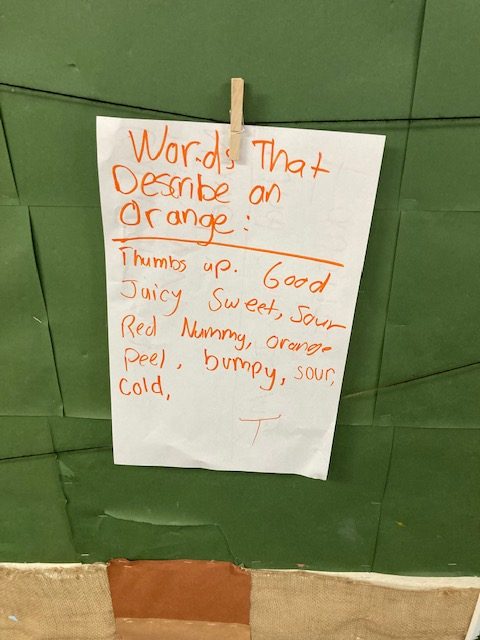 Words That
Describe an
Orange:
Thumbs up. Good
Juicy Sweet, Sour
Red Nummy, orange
Peel, bumpy, sour,
Cold,
T